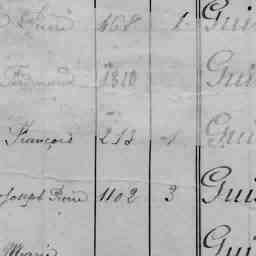 Pierre 468 1 Gui
Fermand 1810 Gui
François 213 1 Gui
Joseph Pierre 1102 3 Gui
Marie Gui